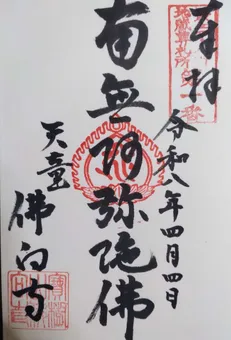 奉拝
令和八年四月四日
南無阿弥陀佛
天童
佛向寺